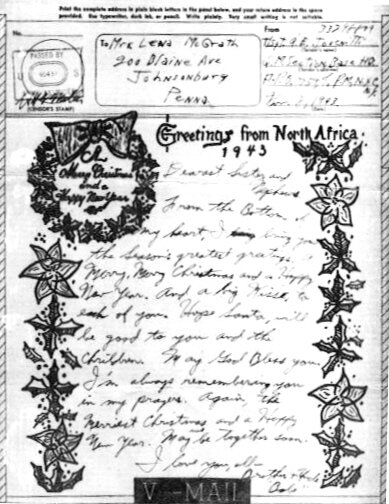 Print the complete address in plain block letters in the panel below, and your return address in the space
provided. Use typewriter, dark ink, or pencil. Write plainly. Very small writing is not suitable.
No.
PASSED BY
(CENSOR'S STAMP)
To Mrs Lena McGrath
200 Blaine Ave
Johnsonburg
Penna
From
Greetings from North Africa
1943
A
Merry Christmas
and a
Happy New Year
Dearest Sister and
Nephews
From the Bottom of
my heart, I bring you
the Season's greatest greetings, a
Merry, Merry Christmas and a Happy
New Year. And a big Kiss, to
each of you. Hope Santa, will
be good to you and the
Children. May God Bless you.
I'm always remembering you
in my prayers. Again, the
Merriest Christmas and a Happy
New Year. May be together soon.
I love you all—
Brother &
V-MAIL